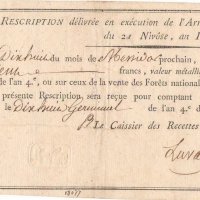 RESCRIPTION délivrée en exécution de l'Ar
du 21 Nivôse, an I
Dixhuit du mois de Messidor prochain,
francs, valeur métalli
de l'an 4e, ou sur ceux de la vente des Forêts national
présente Rescription, sera reçue pour comptant
le Dixhuit Germinal de l'an 4e. d
Le Caissier des Recettes